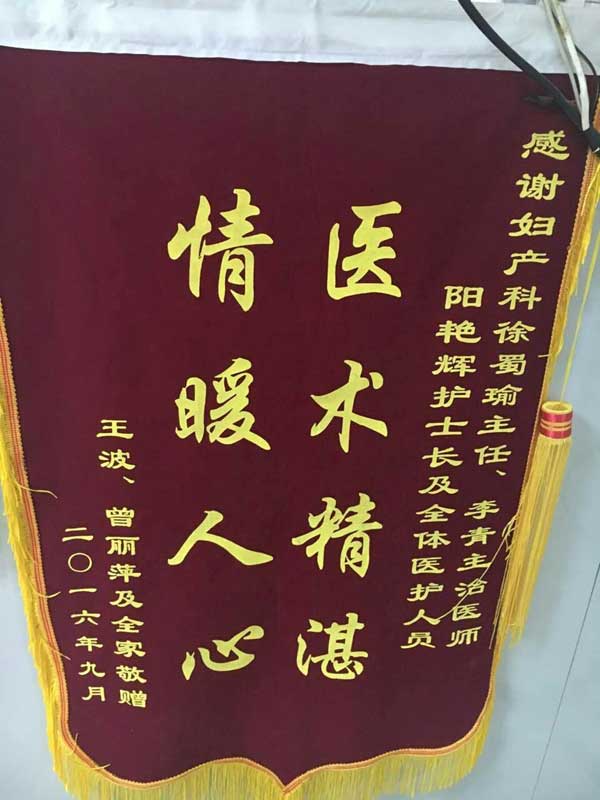 感谢妇产科徐蜀瑜主任、李青主治医师
阳艳辉护士长及全体医护人员
医术精湛
情暖人心
王波、曾丽萍及全家敬赠
二〇一六年九月